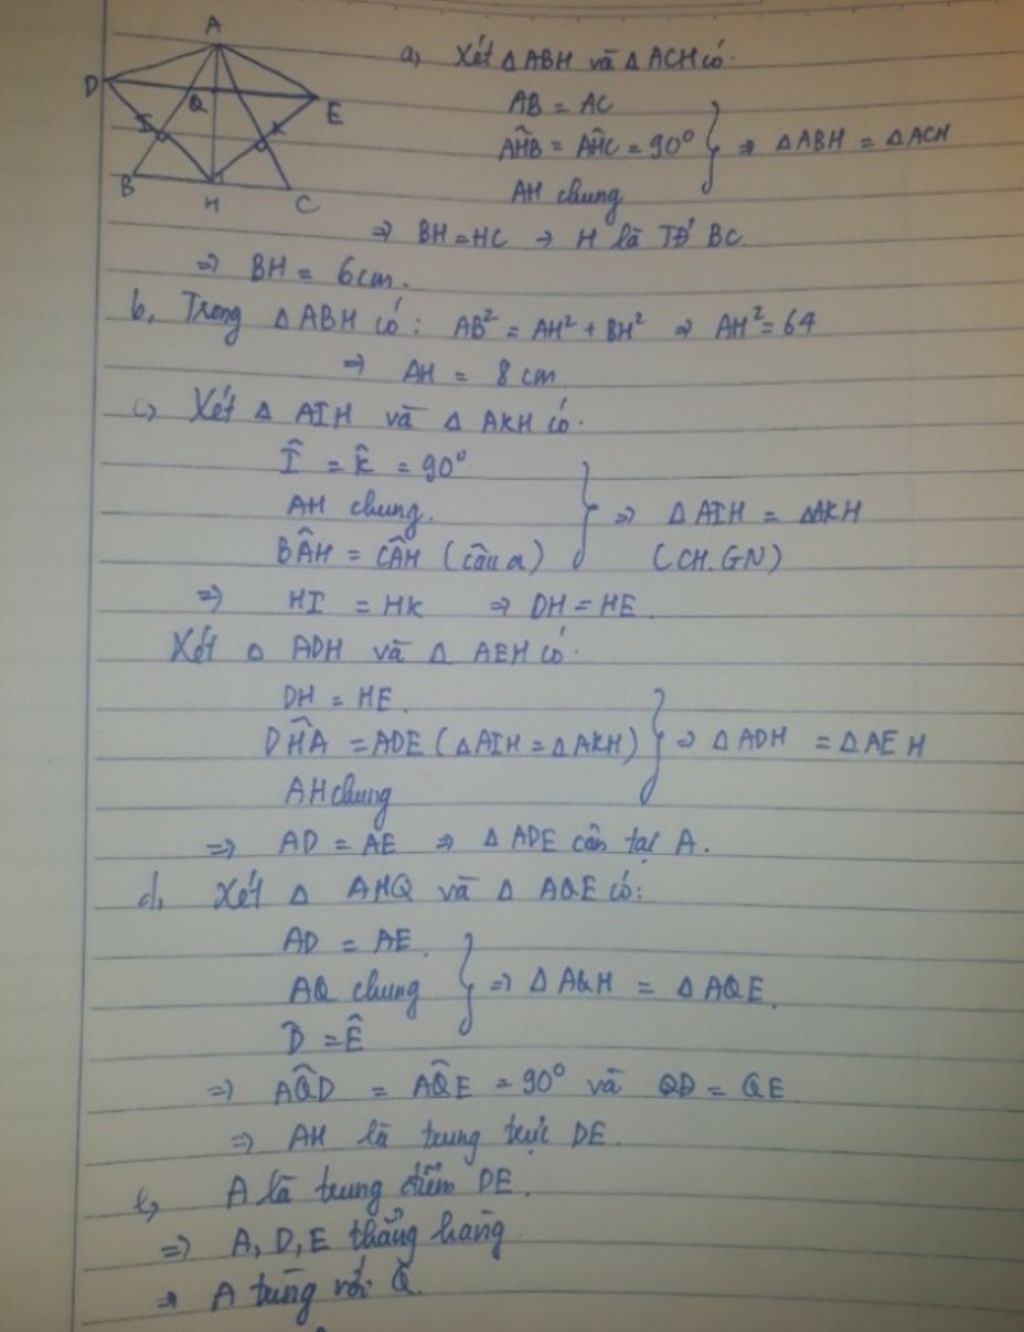 A
D
E
Q
I
K
B
H
C
a, Xét △ABH và △ACH có.
AB = AC
AĤB = AĤC = 90° ⇒ △ABH = △ACH
AH chung
⇒ BH = HC → H là TĐ BC
⇒ BH = 6cm.
b, Trong △ABH có: AB² = AH² + BH² ⇒ AH² = 64
⇒ AH = 8 cm
c, Xét △ AIH và △ AKH có.
Î = K̂ = 90°
AH chung. ⇒ △AIH = △AKH
BÂH = CÂH (câu a) (CH.GN)
⇒ HI = HK ⇒ DH = HE.
Xét △ ADH và △ AEH có.
DH = HE.
DĤA = ADE (△AIH = △AKH) ⇒ △ADH = △AEH
AH chung
⇒ AD = AE ⇒ △ ADE cân tại A.
d, Xét △ AHQ và △ AQE có:
AD = AE.
AQ chung ⇒ △AQH = △AQE.
D̂ = Ê
⇒ AQ̂D = AQ̂E = 90° và QD = QE
⇒ AH là trung trực DE.
e, A là trung điểm DE.
⇒ A, D, E thẳng hàng
⇒ A trùng với Q.